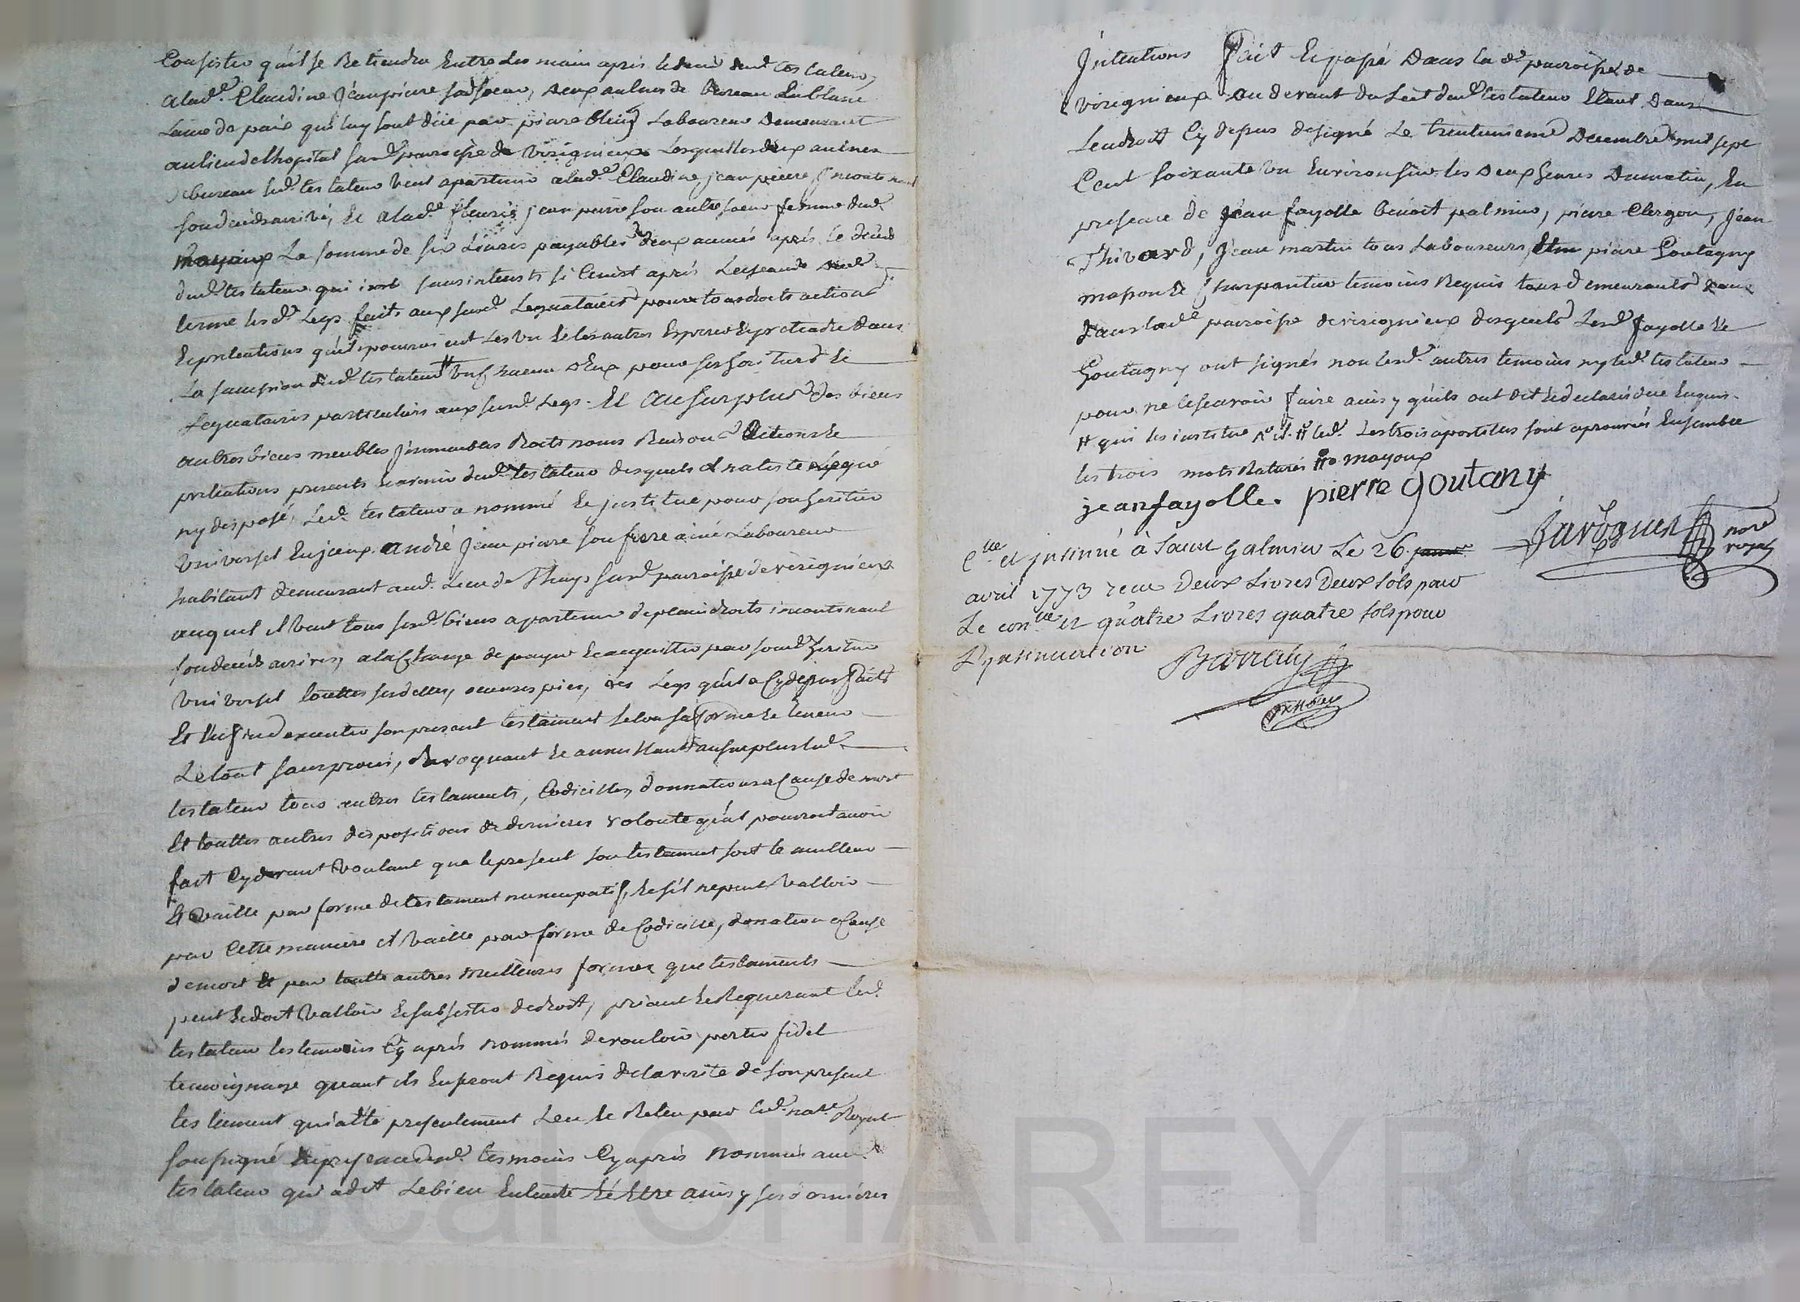 Consister qu'il se Retiendra Entre Les main après le deceds dud. testateur,
a lad.e Claudine Jean pierre sad. soeur, deux aulnes de bureau En blanc
Laine de païs qui luy sont düe par piere Laboureur Demeurant
au lieu de lhopital sus.d parroisse de virignieux Lesquelles deux aulnes
de bureau led. testateur veut apartenir a lad.e Claudine jean pierre Jncontinant
son deceds arrivé, Et a lad.e fleurie jean pierre son autre soeur femme dud.
mayoux La somme de six Livres payables deux années après le deceds
dud. testateur qui sans interests si Ce n'est après Led.
terme les d. Legs faits aux susd. Legataires pour tous droits actions
Et pretentions qu'ils pourroient Les uns Et les autres Esperer Et pretendre dans
La sucession dud. testateur # pour ses heritiers Et
Legataires particuliers aux susd. Legs. Et au surplus des biens
autres biens meubles Jmmeubles Droits noms Raisons Actions Et
pretentions presents Et avenir dud. testateur desquels il n'a testé légué
ny disposé, Led. testateur a nommé Et justitue pour son heritier
universel André jean pierre son frere ainé Laboureur
habitant demeurant aud. Lieu de Thuys sus.d parroisse de virignieux
auquel il veut tous sesd. biens apartenir de plein droits incontinant
son deceds arrivé, a la Charge de payer Et acquitter par sond. heritier
universel touttes ses dettes, oeuvres pies, Les Legs qu'il a Cy dessus faits
Et Enfin d'executer son present testament selon sa forme Et teneur
Le tout sans procès, Revoquant Et annullant au surplus led.
testateur tous autres testaments, Codicilles, donnations a Cause de mort
Et touttes autres dispositions de dernieres volonté qu'il pourroit avoir
fait Cy devant voulant que le present son testament soit le meilleur
Et vaille par forme de testament nuncupatif, Et s'il ne peut valloir
par Cette maniere il vaille par forme de Codicille, donation a Cause
de mort Et par toutte autres meilleures formes que testaments
peut Et doit valloir Et subsister de droit, priant Et Requerant led.
testateur les temoins Cy après nommés de vouloir porter fidel
temoignage quant ils En seront Requis de la verité de son present
testament qui a été presentement Leu Et Releu par led. no.re Royal
soussigné En presence desd. tesmoins Cy après nommés aud.
testateur qui a dit Le bien Entendre Et Etre ainsy ses dernieres
Jntentions Fait Et passé Dans la d.e parroisse de
virignieux Au devant du Lit dud. testateur Etant Dans
Lendroit Cy dessus designé Le trentunieme Decembre mil sept
Cent soixante un Environ sur les Deux heures Du matin, En
presence de jean fayolle benoit palmier, piere Clergon, jean
Thivard, jean martin tous Laboureurs, piere Goutagny
masson Et Charpantier temoins Requis tous Demeurants
dans lad.e parroisse de virignieux desquels Lesd. fayolle Et
Goutagny ont signés non lesd. autres temoins ny led. testateur
pour ne le scavoir faire ainsy qu'ils ont dit Et declarés de ce Enquis.
# qui les institue # led. Les trois apostilles sont aprouvées Ensemble
les trois mots Raturés mayoux
jean fayolle. pierre goutany
Javognier no.re royal
C.lle et jnsinué à Saint Galmier Le 26
avril 1773 recu Deux Livres Deux sols pour
Le con.lle et quatre Livres quatre sols pour
L'jnsinuation Barraly
ascal CHAREYRON